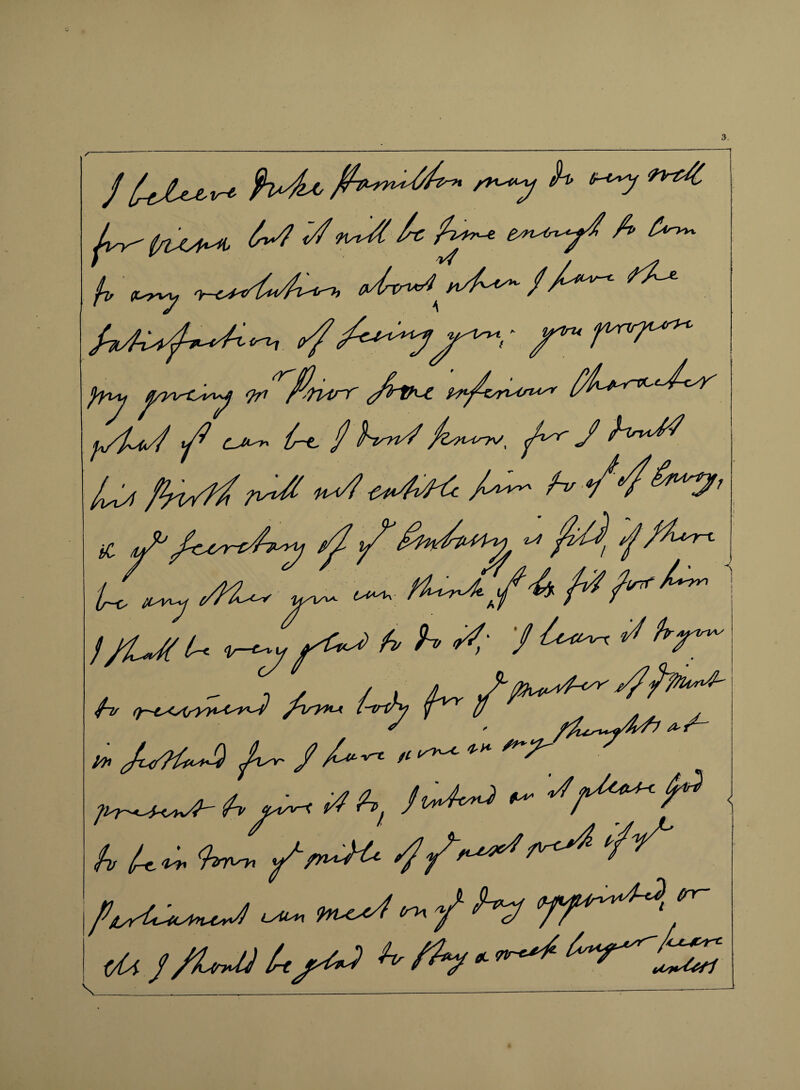 3.
I beleeve Duke Hammilton may do
for but it will be time enough to Com
to any resolution about it when I have the
satisfaction of seeing you; you propose
my giving mr Prior some inferiour Charecter
what yt can be I know, for I doutt
his birth will not entitle him to yt of Envoy,
ye secretary of ye Embassy is fild, if there
be any other you can think yt is fit for him
I shall be very glad to do it; I leave it to you
to recommend some body for ye Master of ye Mint
in Scotland for I have none in my thoughts at
present to give it to, I intend an it please God
to be in Town ye midle of ye next week if ye
Parliament can meet on ye day appointed, or
els I should be glad to stay a week longer heare